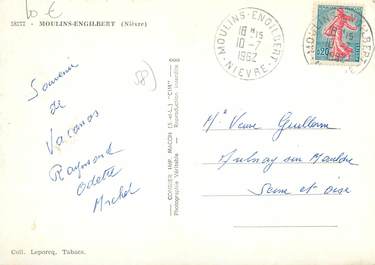 10 €
18777 - MOULINS-ENGILBERT (Nièvre)
MOULINS-ENGILBERT
18 H 15
10-7
1962
NIEVRE
MOULINS-ENGILBERT
15
0,20
(58)
Souvenir
de
Vacances
Raymond
Odette
Michel
COMBIER IMP. MACON (S.-et-L.) "CIM"
Photographie Véritable - Reproduction interdite
Me Veuve Guillerm
Aulnay sur Mauldre
Seine et Oise
Coll. Leporcq, Tabacs.